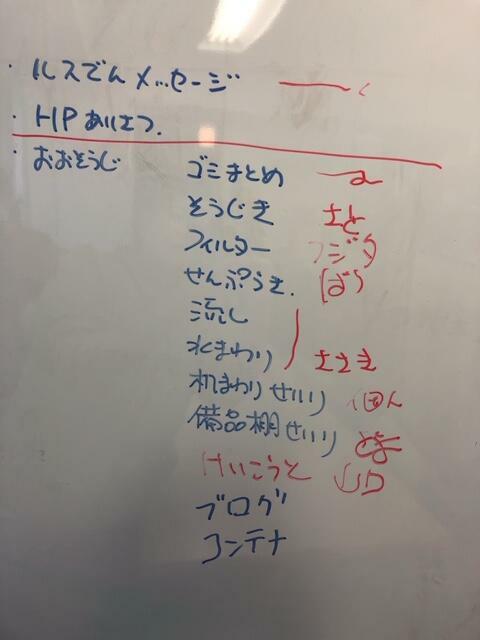 ・ルスでんメッセージ
・HPあいさつ.
・おおそうじ ゴミまとめ
そうじき さと
フィルター フジタ
せんぷうき.
流し
水まわり ささき
机まわりせいり 個人
備品棚せいり
けいこうとう
ブログ
コンテナ